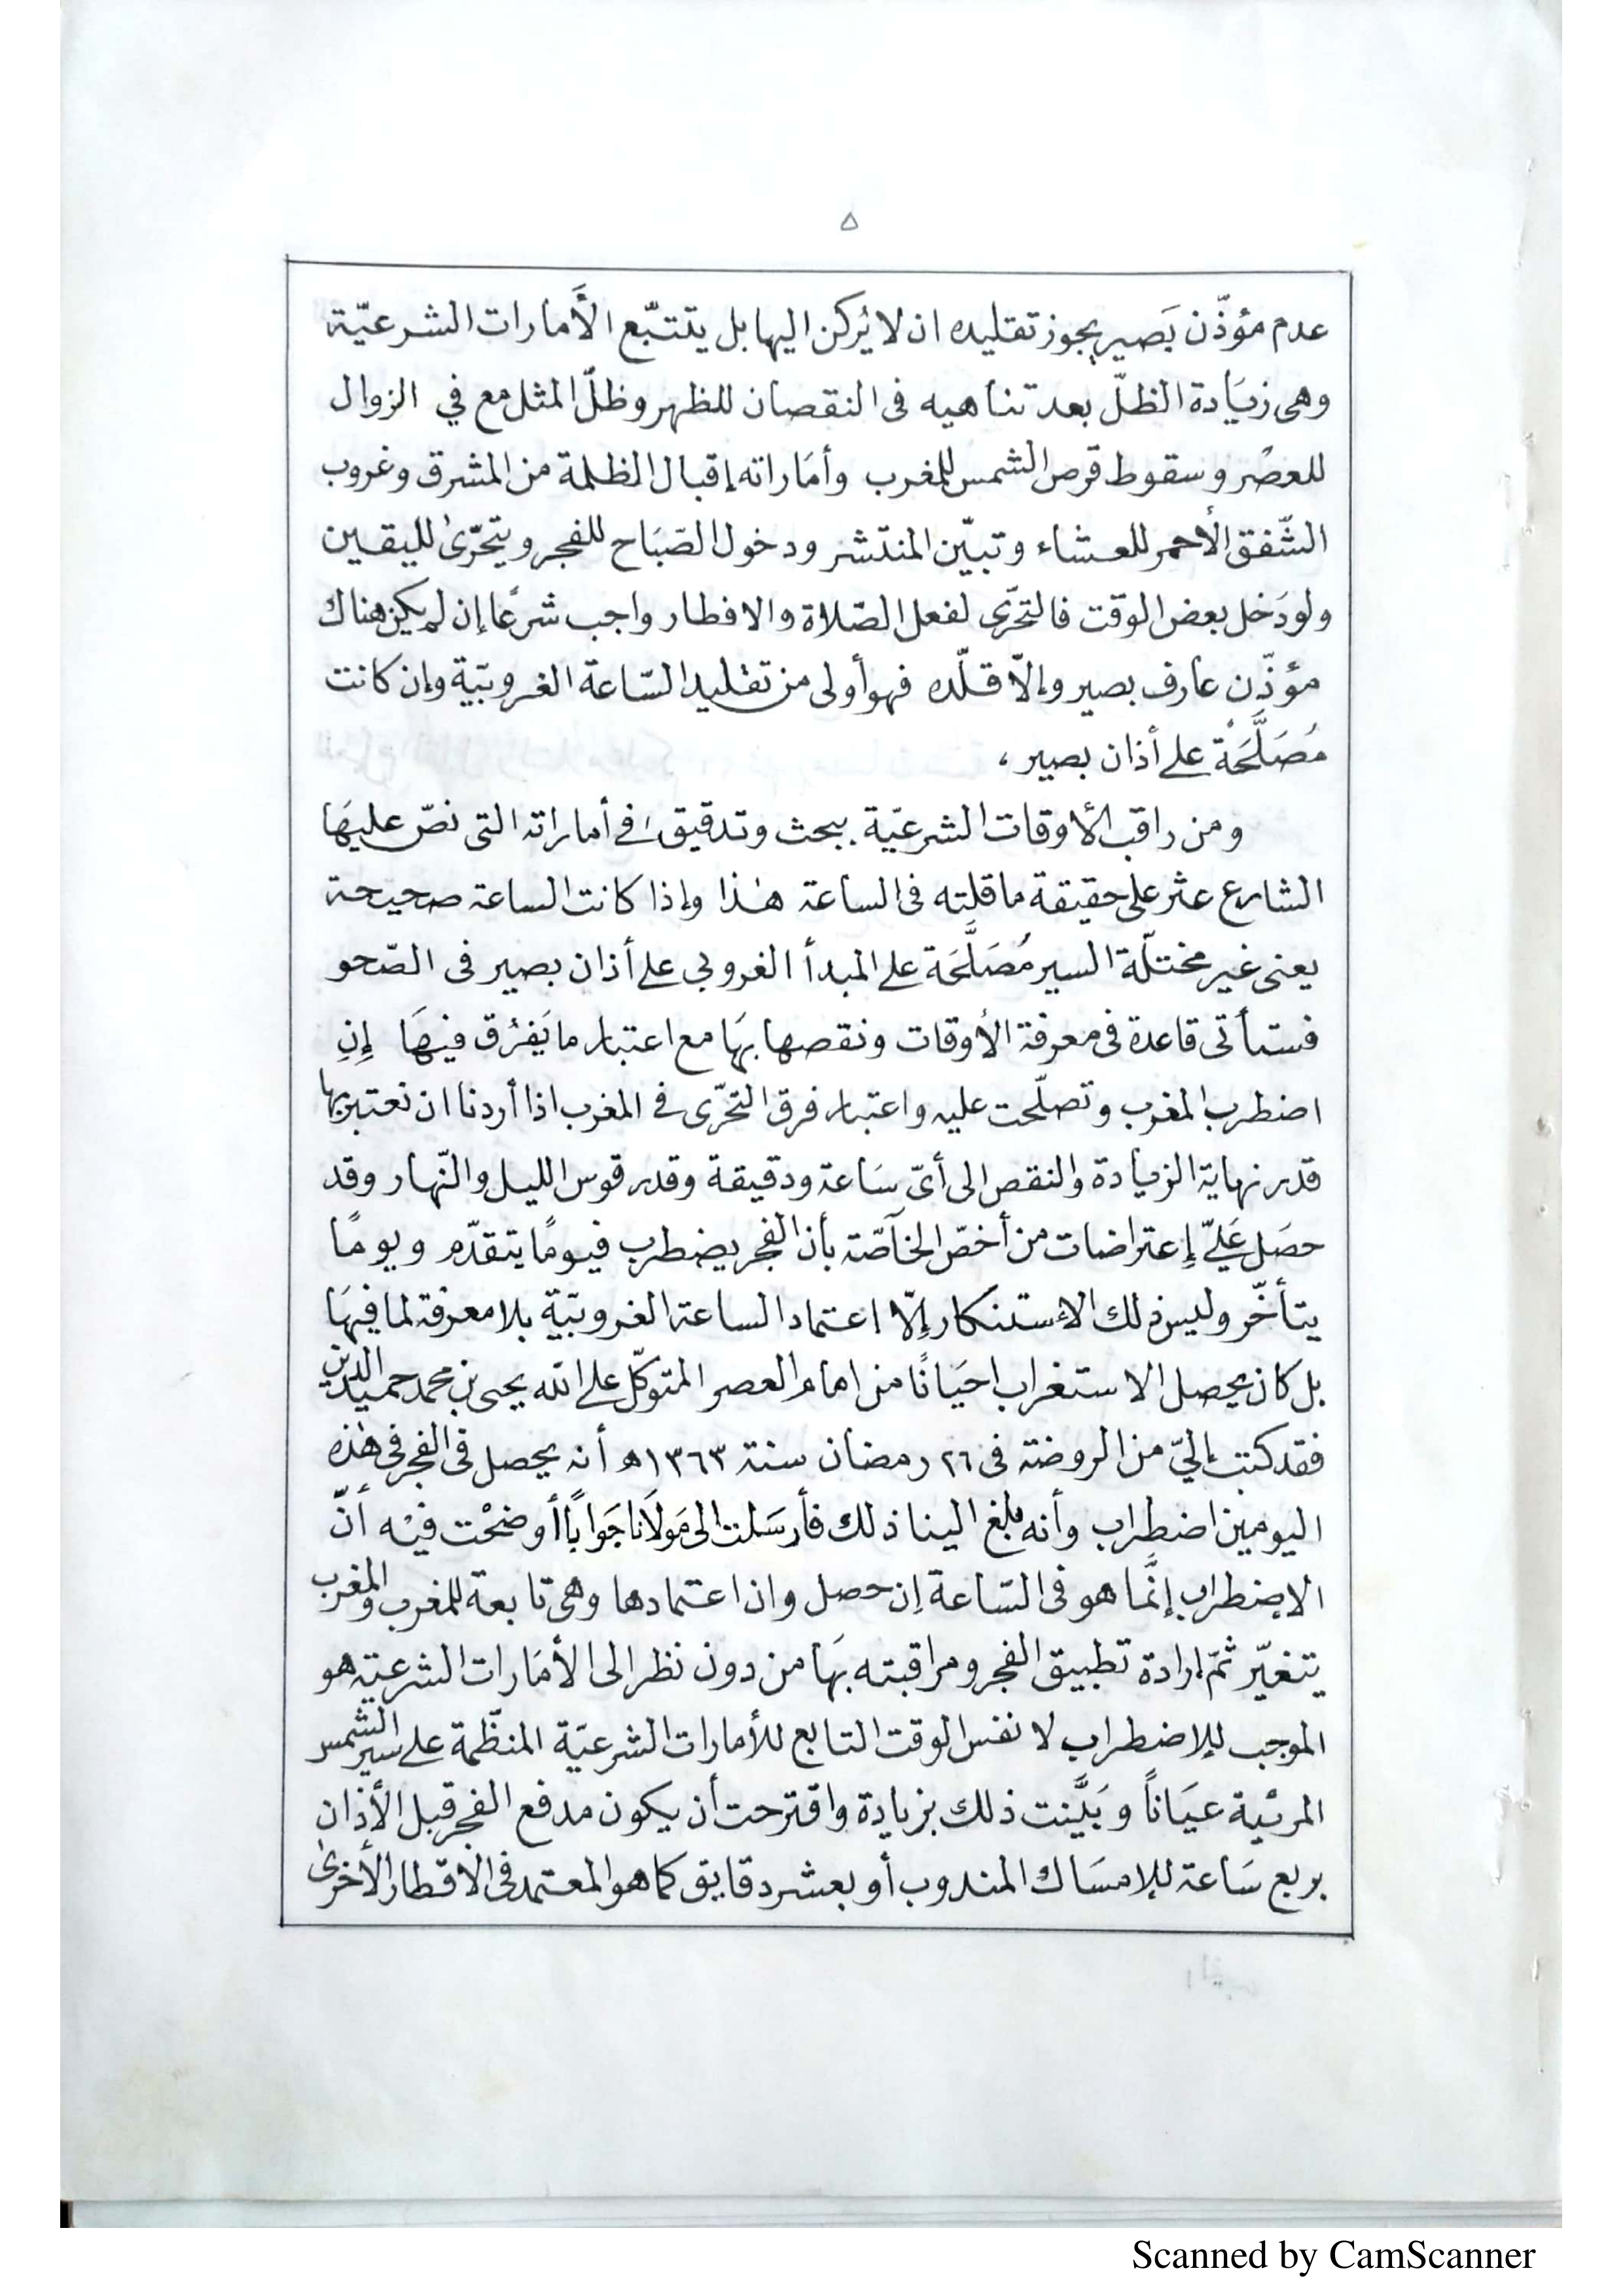 ٥
عدم مؤذّن بَصير يجوز تقليده ان لا يُركن اليها بل يتتبّع الأَمارات الشرعيّة
وهى زيَادة الظلّ بعد تناهيه فى النقصان للظهر وظلّ المثل مع في الزوال
للعصْر وسقوط قرص الشمس للمغرب وأمَاراته إقبال الظلمة من المشرق وغروب
الشّفق الأحمر للعشاء وتبيّن المنتشر ودخول الصّبَاح للفجر ويتحرّىٰ لليقين
ولو دَخل بعض الوقت فالتحرّى لفعل الصّلاة والافطار واجب شرعًا إن لم يكن هناك
مؤذّن عارف بصير وإلّا قلّده فهو أولى من تقليد السّاعة الغروبيّة وإن كانت
مُصَلَّحَة على أذان بصير ،
ومن راقب الأوقات الشرعيّة ببحث وتدقيق في أماراته التى نصّ عليهَا
الشارع عثر على حقيقة ما قلته فى الساعة هٰذا وإذا كانت الساعة صحيحة
يعنى غير مختلّة السير مُصَلَّحَة على المبدأ الغروبي على أذان بصير فى الصّحو
فستأتى قاعدة فى معرفة الأوقات ونقصها بهَا مع اعتبار ما يَفرُق فيهَا إِنِ
اضطرب المغرب وتصلّحت عليه واعتبار فرق التحرّى في المغرب اذا أردنا ان نعتبر بها
قدر نهاية الزيادة والنقص الى أىّ سَاعة ودقيقة وقدر قوس الليل والنّهار وقد
حصَل عَليّ إعتراضات من أخصّ الخآصّة بأن الفجر يضطرب فيومًا يتقدّم ويومًا
يتأخّر وليس ذلك الإستنكار إلّا اعتماد الساعة الغروبيّة بلا معرفة لما فيهَا
بل كان يحصل الاستغراب احيَانًا من امام العصر المتوكّل على الله يحيى بن محمد حميد الدين
فقد كتب إليّ من الروضة فى ٢٦ رمضان سنة ١٣٦٣ه أنه يحصل فى الفجر فى هٰذه
اليومين اضطراب وأنه بلغ الينا ذلك فأرسَلت الى مَولَانا جَوابًا أوضحْت فيْه أنّ
الاضطراب إنَّما هو فى السّاعة إن حصل وان اعتمادها وهى تابعة للمغرب والمغرب
يتغيّر ثمّ إرادة تطبيق الفجر ومراقبته بهَا من دون نظر الى الأمَارات الشرعيّة هو
الموجب للإضطراب لا نفس الوقت التابع للأمارات الشرعيّة المنظّمة على سير الشمس
المرئية عيَاناً وبَيَّنت ذلك بزيادة واقترحت أن يكون مدفع الفجر قبل الأذان
بربع سَاعة للإمسَاك المندوب أو بعشر دقايق كما هو المعتمد فى الاقطار الأخرىٰ
Scanned by CamScanner